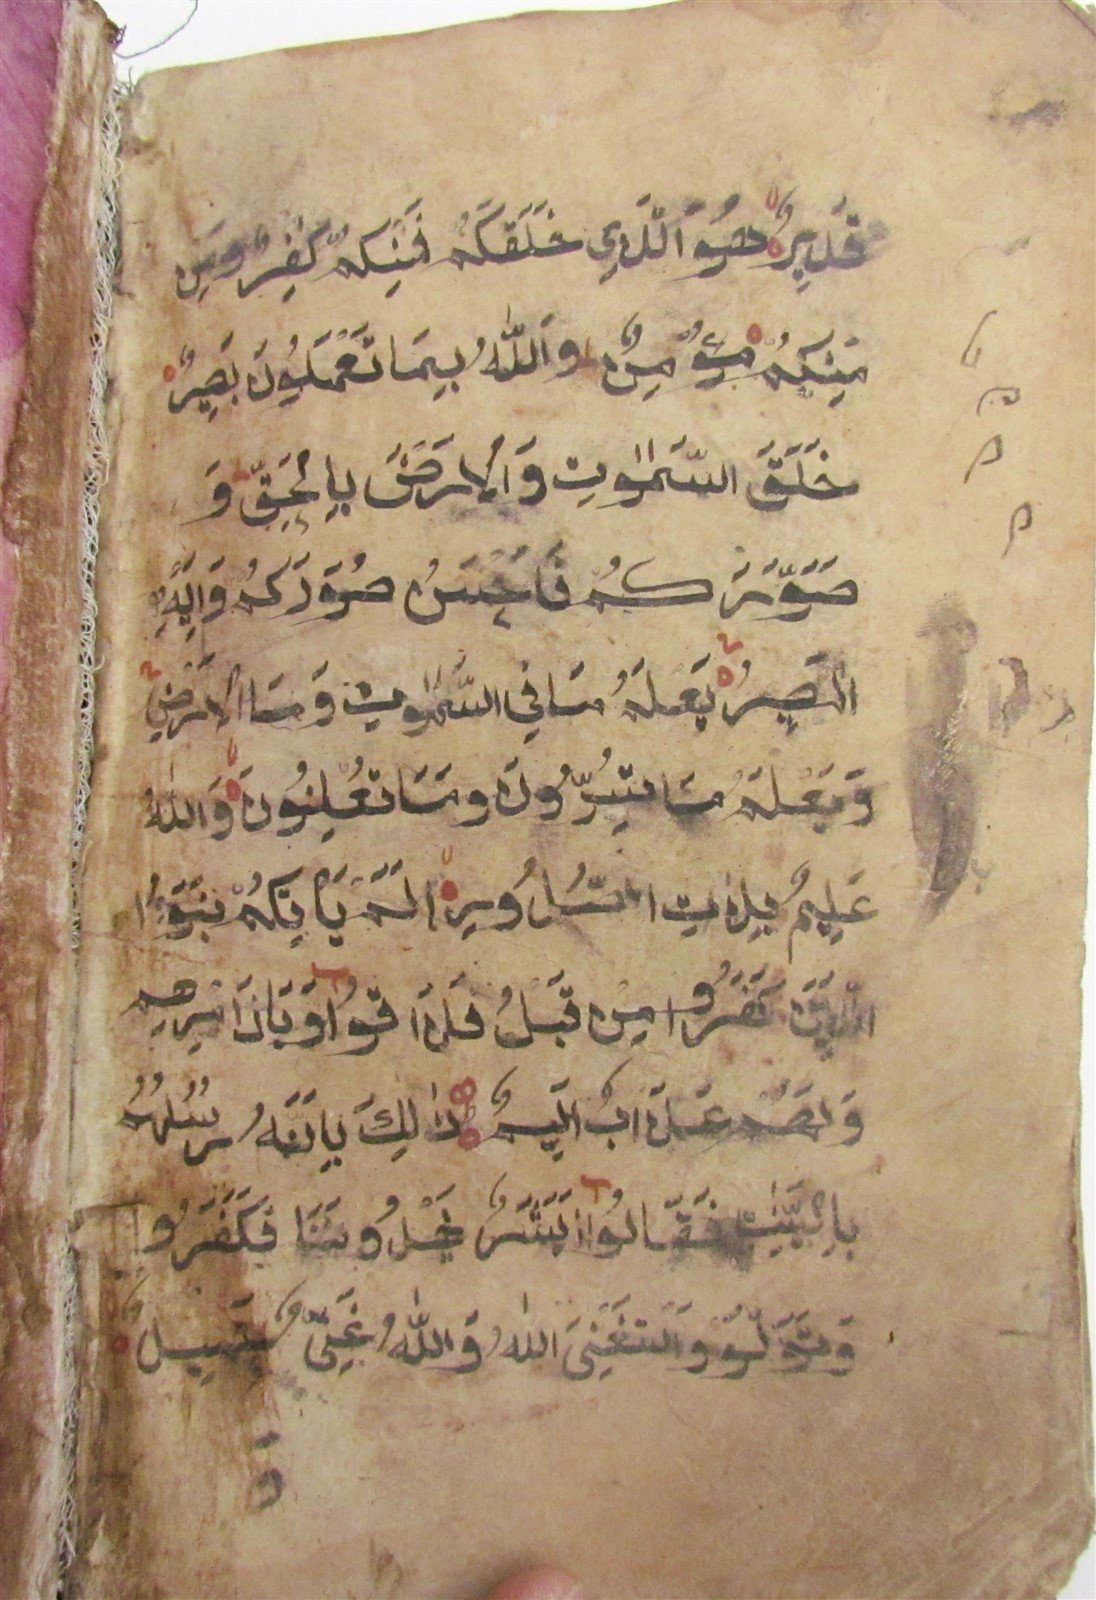 قَدِيرٌ هُوَ الَّذِي خَلَقَكُمْ فَمِنْكُمْ كَٰفِرٌ وَمِن
مِنْكُمْ مُؤْمِنٌ وَاللّٰهُ بِمَا تَعْمَلُونَ بَصِيرٌ
خَلَقَ السَّمٰوٰتِ وَالْاَرْضَ بِالْحَقِّ وَ
صَوَّرَكُمْ فَاَحْسَنَ صُوَرَكُمْ وَاِلَيْهِ
الْمَصِيرُ يَعْلَمُ مَا فِي السَّمٰوٰتِ وَمَا الْاَرْضِ
وَيَعْلَمُ مَا تُسِرُّونَ وَمَا تُعْلِنُونَ وَاللّٰهُ
عَلِيمٌ بِذَاتِ الصُّدُورِ اَلَمْ يَأْتِكُمْ نَبَؤُا
الَّذِينَ كَفَرُوا مِنْ قَبْلُ فَذَاقُوا وَبَالَ اَمْرِهِمْ
وَلَهُمْ عَذَابٌ اَلِيمٌ ذٰلِكَ بِاَنَّهُ رُسُلُهُمْ
بِالْبَيِّنٰتِ فَقَالُوا اَبَشَرٌ يَهْدُونَنَا فَكَفَرُو
وَتَوَلَّوْ وَاسْتَغْنَى اللّٰهُ وَاللّٰهُ غَنِىٌّ حَمِيدٌ